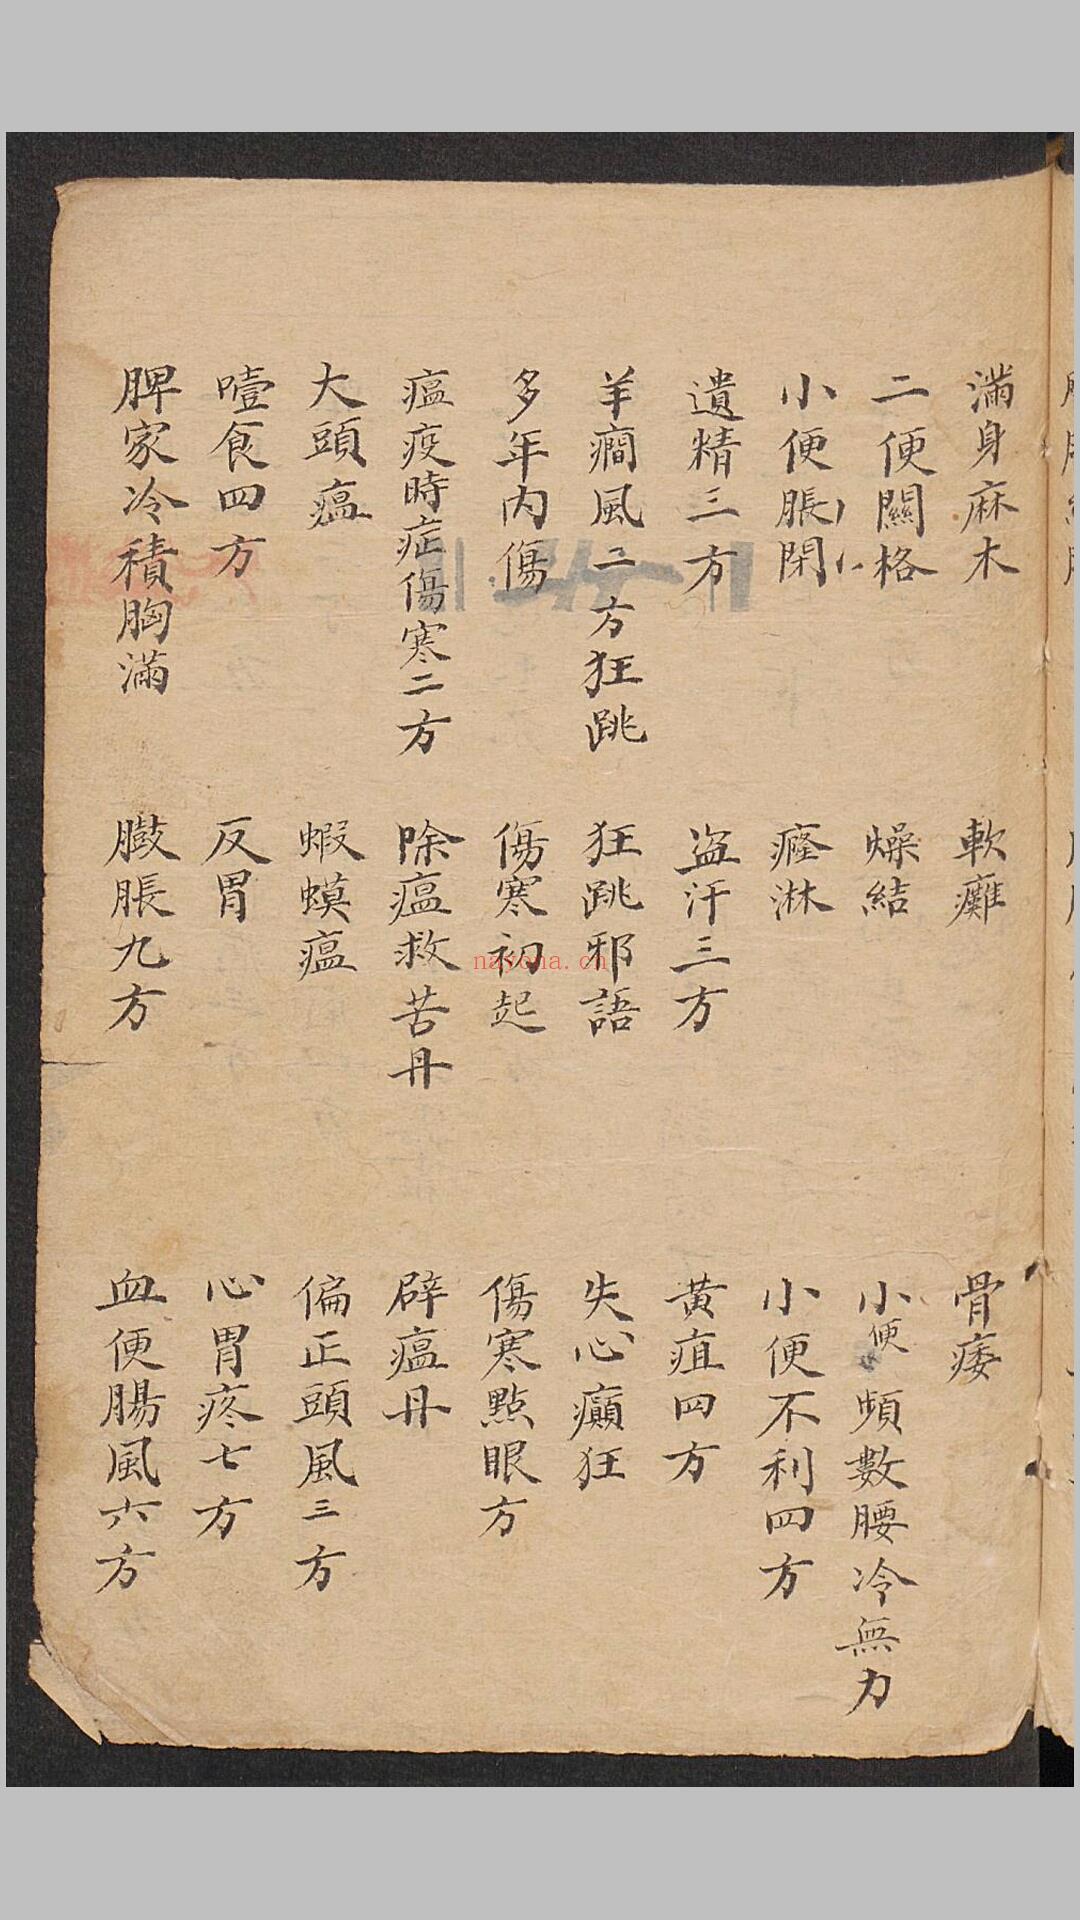 滿身麻木 軟癱 骨痿
二便關格 燥結 小便頻數腰冷無力
小便脹閉 癃淋 小便不利四方
遺精三方 盗汗三方 黃疸四方
羊癇風二方狂跳 狂跳邪語 失心癲狂
多年內傷 傷寒初起 傷寒點眼方
瘟疫時症傷寒二方 除瘟救苦丹 辟瘟丹
大頭瘟 蝦蟆瘟 偏正頭風三方
噎食四方 反胃 心胃疼七方
脾家冷積胸滿 臌脹九方 血便腸風六方
nayona.cn